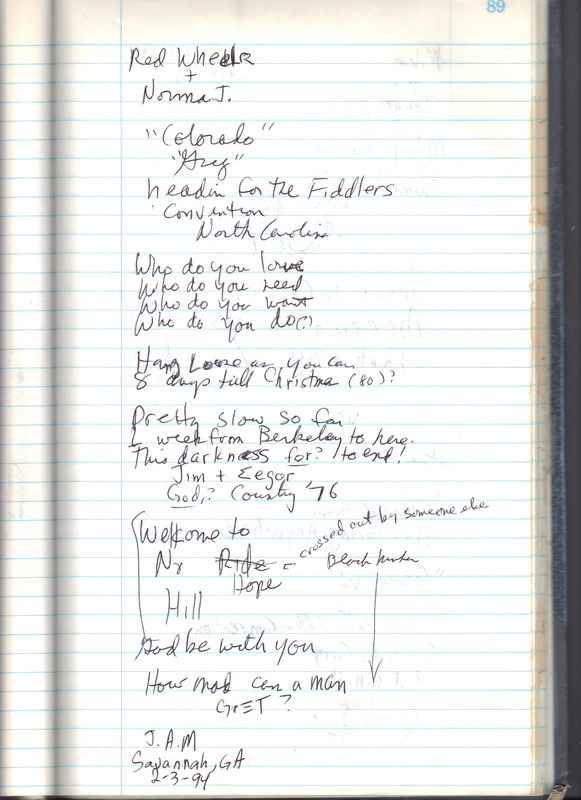 89
Red Wheelz
+
Norma J.
"Colorado"
"Greg"
headin for the Fiddlers
Convention
North Carolina
Who do you love
Who do you need
Who do you want
Who do you do(?)
Hang Loose as you can
8 days till Christmas (80)?
Pretty slow so far
1 week from Berkeley to here.
This darkness for? to end!
Jim + Eegor
God,? Country '76
Welkome to
Nr Ride - crossed out by someone else
Hope Black
Hill
God be with you
How mad can a man
GET?
J.A.M
Savannah, GA
2-3-94